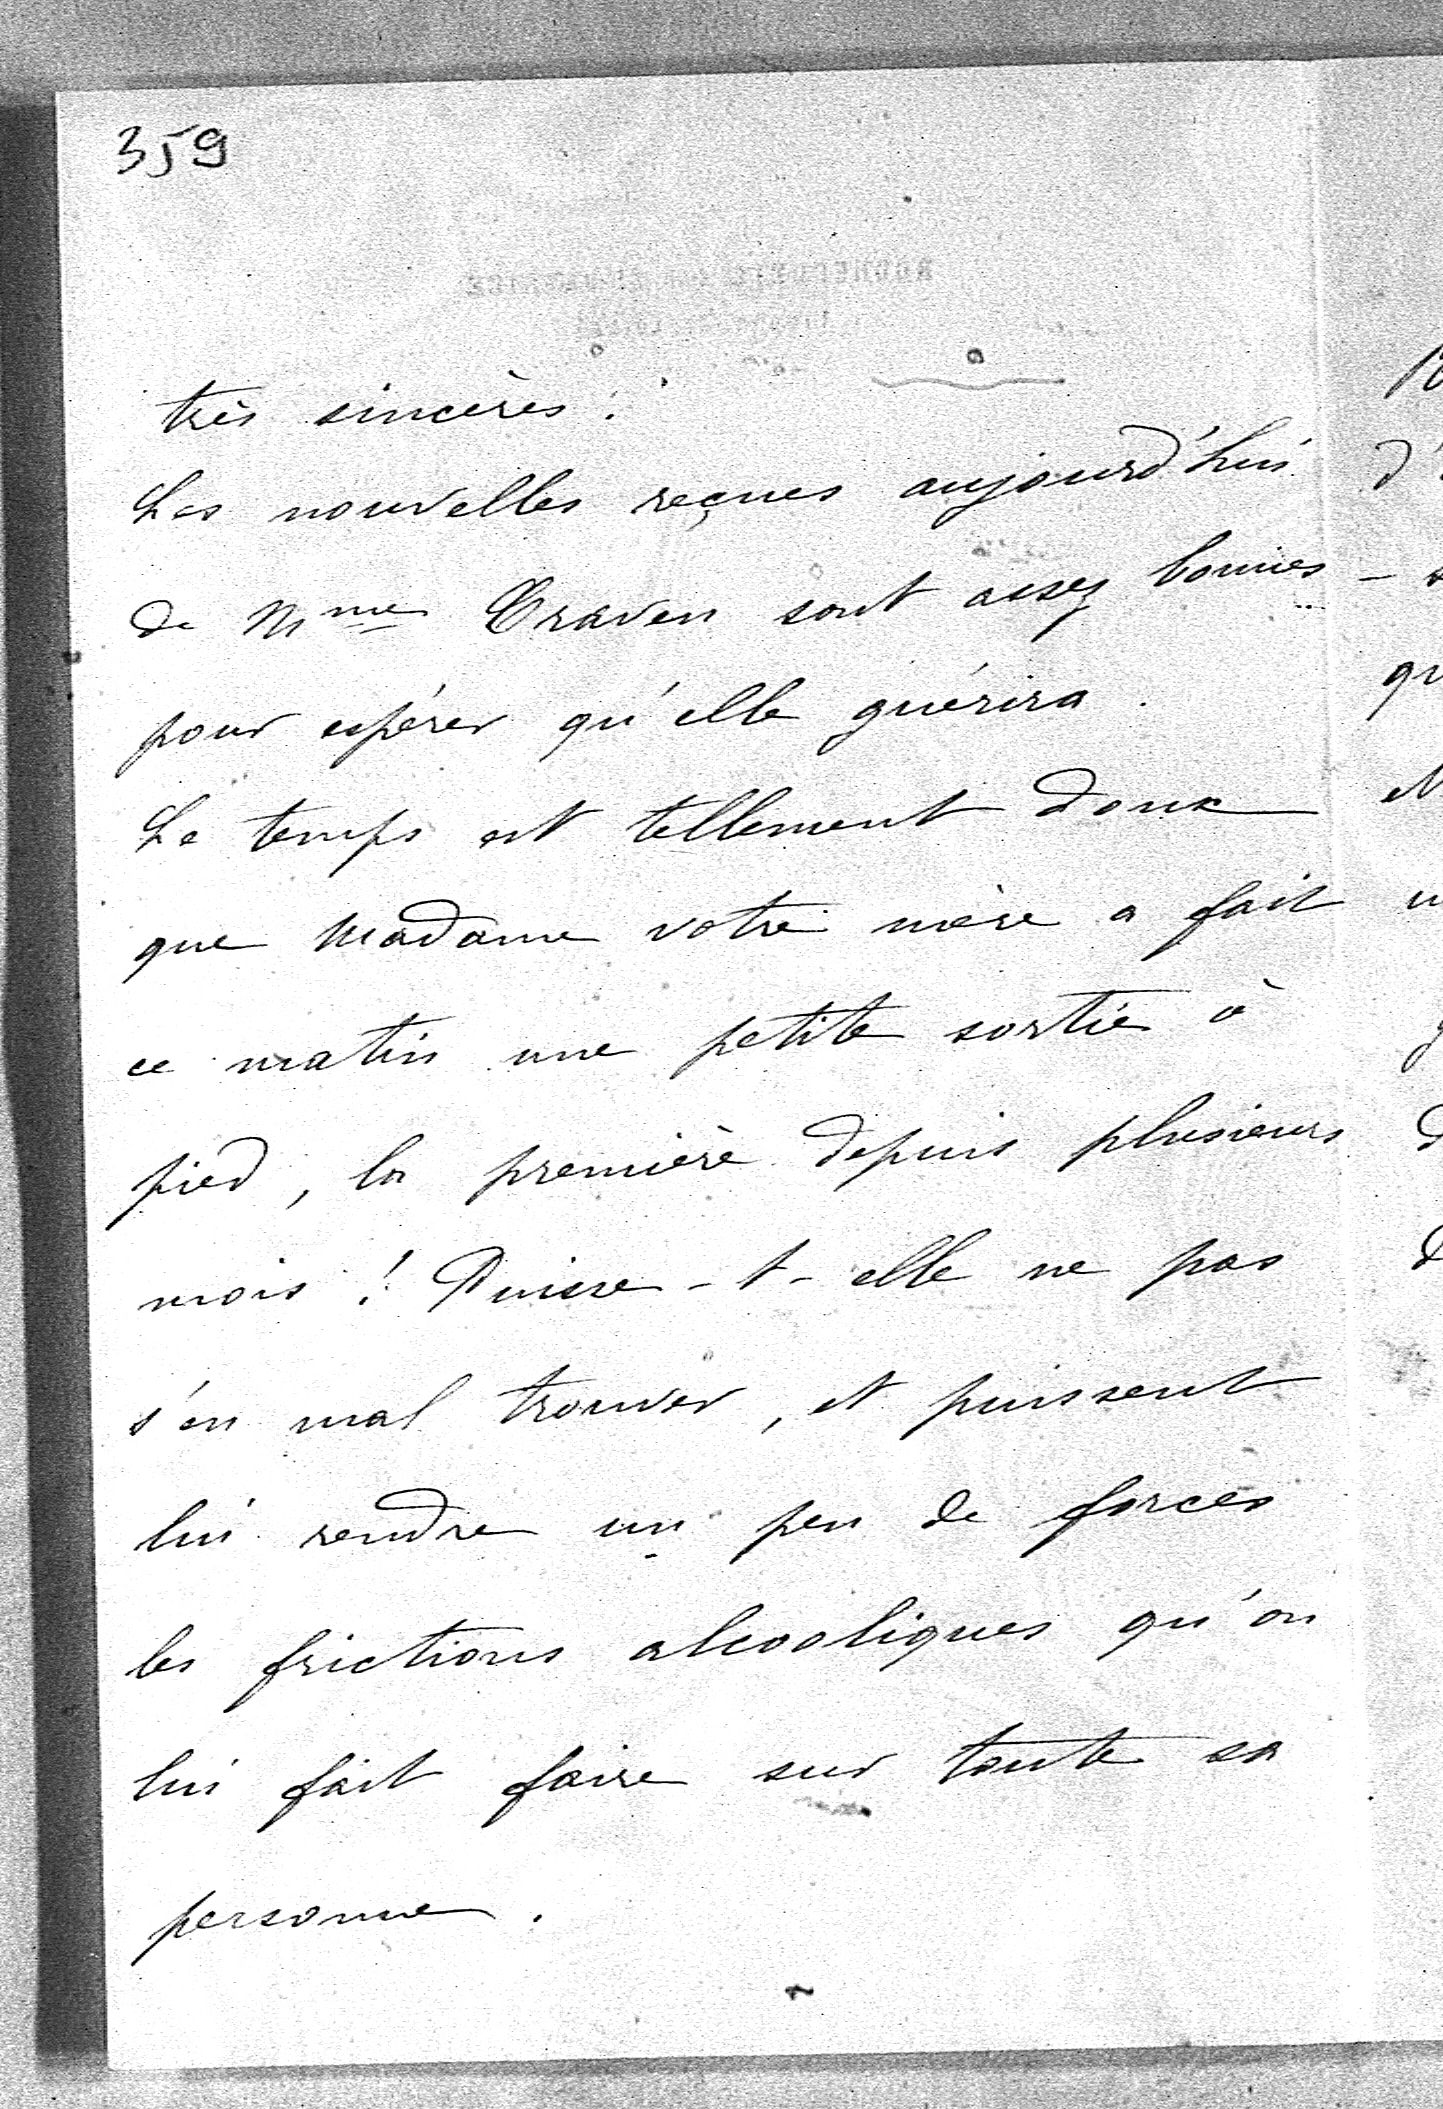 359
très sincères.
Les nouvelles reçues aujourd'hui
de Mme Craven sont assez bonnes -
pour espérer qu'elle guérira.
Le temps est tellement doux
que Madame votre mère a fait
ce matin une petite sortie à
pied, la première depuis plusieurs
mois ! Puisse-t-elle ne pas
s'en mal trouver, et puissent
lui rendre un peu de forces
les frictions alcooliques qu'on
lui fait faire sur toute sa
personne.